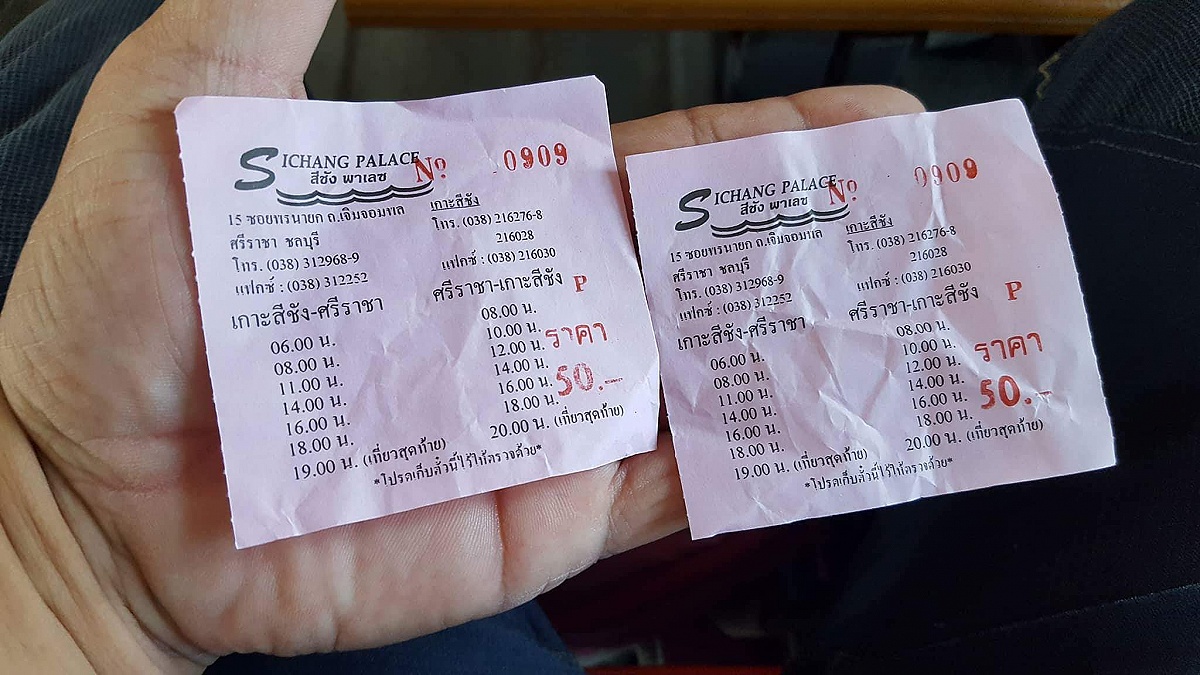 SICHANG PALACE
สีชัง พาเลซ
Nº 0909
15 ซอยทรนายก ถ.เจิมจอมพล
ศรีราชา ชลบุรี
โทร. (038) 312968-9
แฟกซ์ : (038) 312252
เกาะสีชัง
โทร. (038) 216276-8
216028
แฟกซ์ : (038) 216030
เกาะสีชัง-ศรีราชา
06.00 น.
08.00 น.
11.00 น.
14.00 น.
16.00 น.
18.00 น.
19.00 น. (เที่ยวสุดท้าย)
ศรีราชา-เกาะสีชัง P
08.00 น.
10.00 น.
12.00 น.
14.00 น.
16.00 น.
18.00 น.
20.00 น. (เที่ยวสุดท้าย)
ราคา
50.-
*โปรดเก็บตั๋วนี้ไว้ให้ตรวจด้วย*
SICHANG PALACE
สีชัง พาเลซ
Nº 0909
15 ซอยทรนายก ถ.เจิมจอมพล
ศรีราชา ชลบุรี
โทร. (038) 312968-9
แฟกซ์ : (038) 312252
เกาะสีชัง
โทร. (038) 216276-8
216028
แฟกซ์ : (038) 216030
เกาะสีชัง-ศรีราชา
06.00 น.
08.00 น.
11.00 น.
14.00 น.
16.00 น.
18.00 น.
19.00 น. (เที่ยวสุดท้าย)
ศรีราชา-เกาะสีชัง P
08.00 น.
10.00 น.
12.00 น.
14.00 น.
16.00 น.
18.00 น.
20.00 น. (เที่ยวสุดท้าย)
ราคา
50.-
*โปรดเก็บตั๋วนี้ไว้ให้ตรวจด้วย*